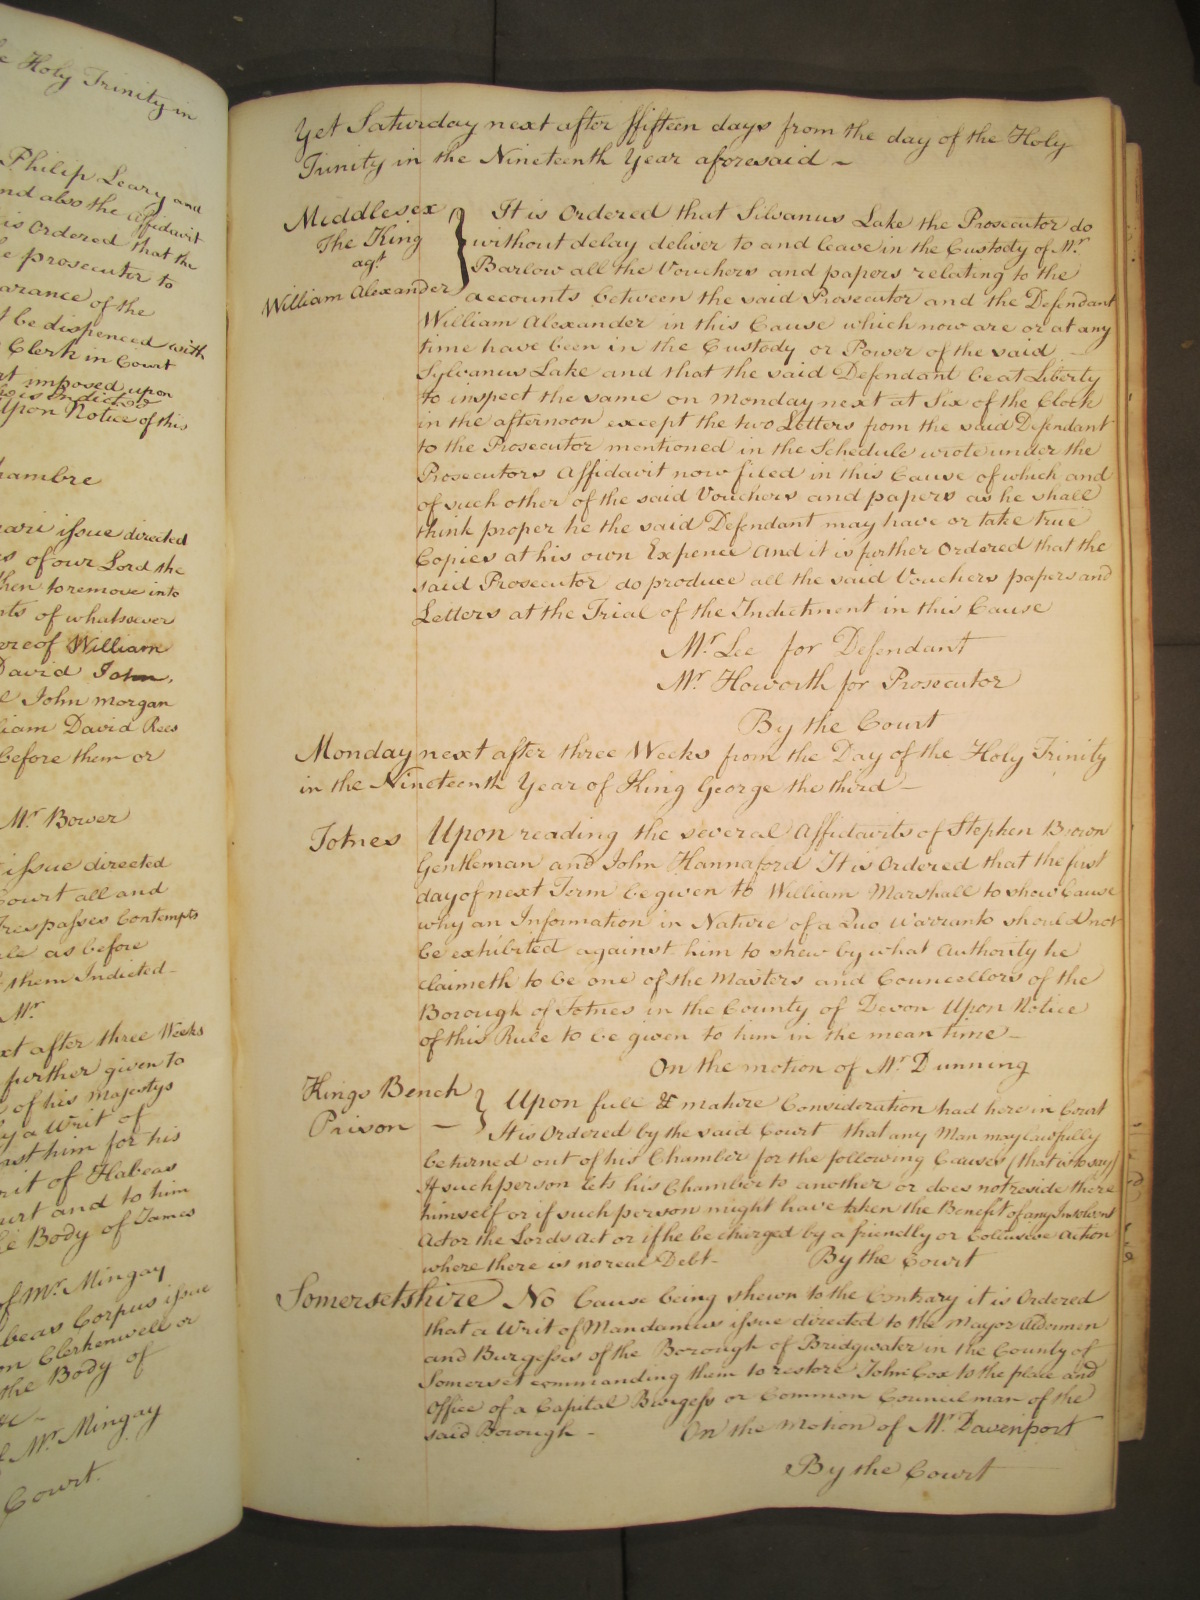 e Holy Trinity in
Philip Leary and
nd also the affidavit
is Ordered that the
e prosecutor to
arance of the
t be dispenced with
Clerk in Court
rt imposed upon
his Indicted
Upon Notice of this
hambre
rari issue directed
s of our Lord the
then to remove into
nts of whatsoever
ereof William
David John
John Morgan
liam David Rees
before them or
Mr. Bower
issue directed
Court all and
Trespasses Contempts
le as before
them Indicted
Mr.
xt after three Weeks
further given to
of his Majestys
y a Writ of
ast him for his
rit of Habeas
urt and to him
e Body of James
of Mr. Mingay
beas Corpus issue
m Clerkenwell or
the Body of
Mr. Mingay
Court.
Yet Saturday next after ffifteen days from the day of the Holy
Trinity in the Nineteenth Year aforesaid –
Middlesex
The King
agt
William Alexander
It is Ordered that Silvanus Lake the Prosecutor do
without delay deliver to and leave in the Custody of Mr.
Barlow all the Vouchers and papers relating to the
accounts between the said Prosecutor and the Defendant
William Alexander in this Cause which now are or at any
time have been in the Custody or Power of the said –
Sylvanus Lake and that the said Defendant be at Liberty
to inspect the same on Monday next at Six of the Clock
in the afternoon except the two Letters from the said Defendant
to the Prosecutor mentioned in the Schedule wrote under the
Prosecutors Affidavit now filed in this Cause of which and
of such other of the said Vouchers and papers as he shall
think proper he the said Defendant may have or take true
Copies at his own Expence And it is further Ordered that the
said Prosecutor do produce all the said Vouchers papers and
Letters at the Trial of the Indictment in this Cause
Mr. Lee for Defendant
Mr. Howorth for Prosecutor
By the Court
Monday next after three Weeks from the Day of the Holy Trinity
in the Nineteenth Year of King George the third –
Totnes Upon reading the several Affidavits of Stephen Brown
Gentleman and John Hannaford It is Ordered that the first
day of next Term be given to William Marshall to show Cause
why an Information in Nature of a Quo Warranto should not
be exhibited against him to shew by what Authority he
claimeth to be one of the Masters and Councellors of the
Borough of Totnes in the County of Devon Upon Notice
of this Rule to be given to him in the mean time –
On the motion of Mr. Dunning
Kings Bench
Prison –
Upon full & mature Consideration had here in Court
It is Ordered by the said Court that any Man may lawfully
be turned out of his Chamber for the following Causes (that is to say)
If such person lets his Chamber to another or does not reside there
himself or if such person might have taken the Benefit of any Insolvent
Act or the Lords Act or if he be charged by a friendly or Colusive Action
where there is no real Debt – By the Court
Somersetshire No Cause being shewn to the Contrary it is Ordered
that a Writ of Mandamus issue directed to the Mayor Aldermen
and Burgesses of the Borough of Bridgwater in the County of
Somerset commanding them to restore John Cox to the place and
Office of a Capital Burgess or Common Council man of the
said Borough – On the Motion of Mr. Davenport
By the Court